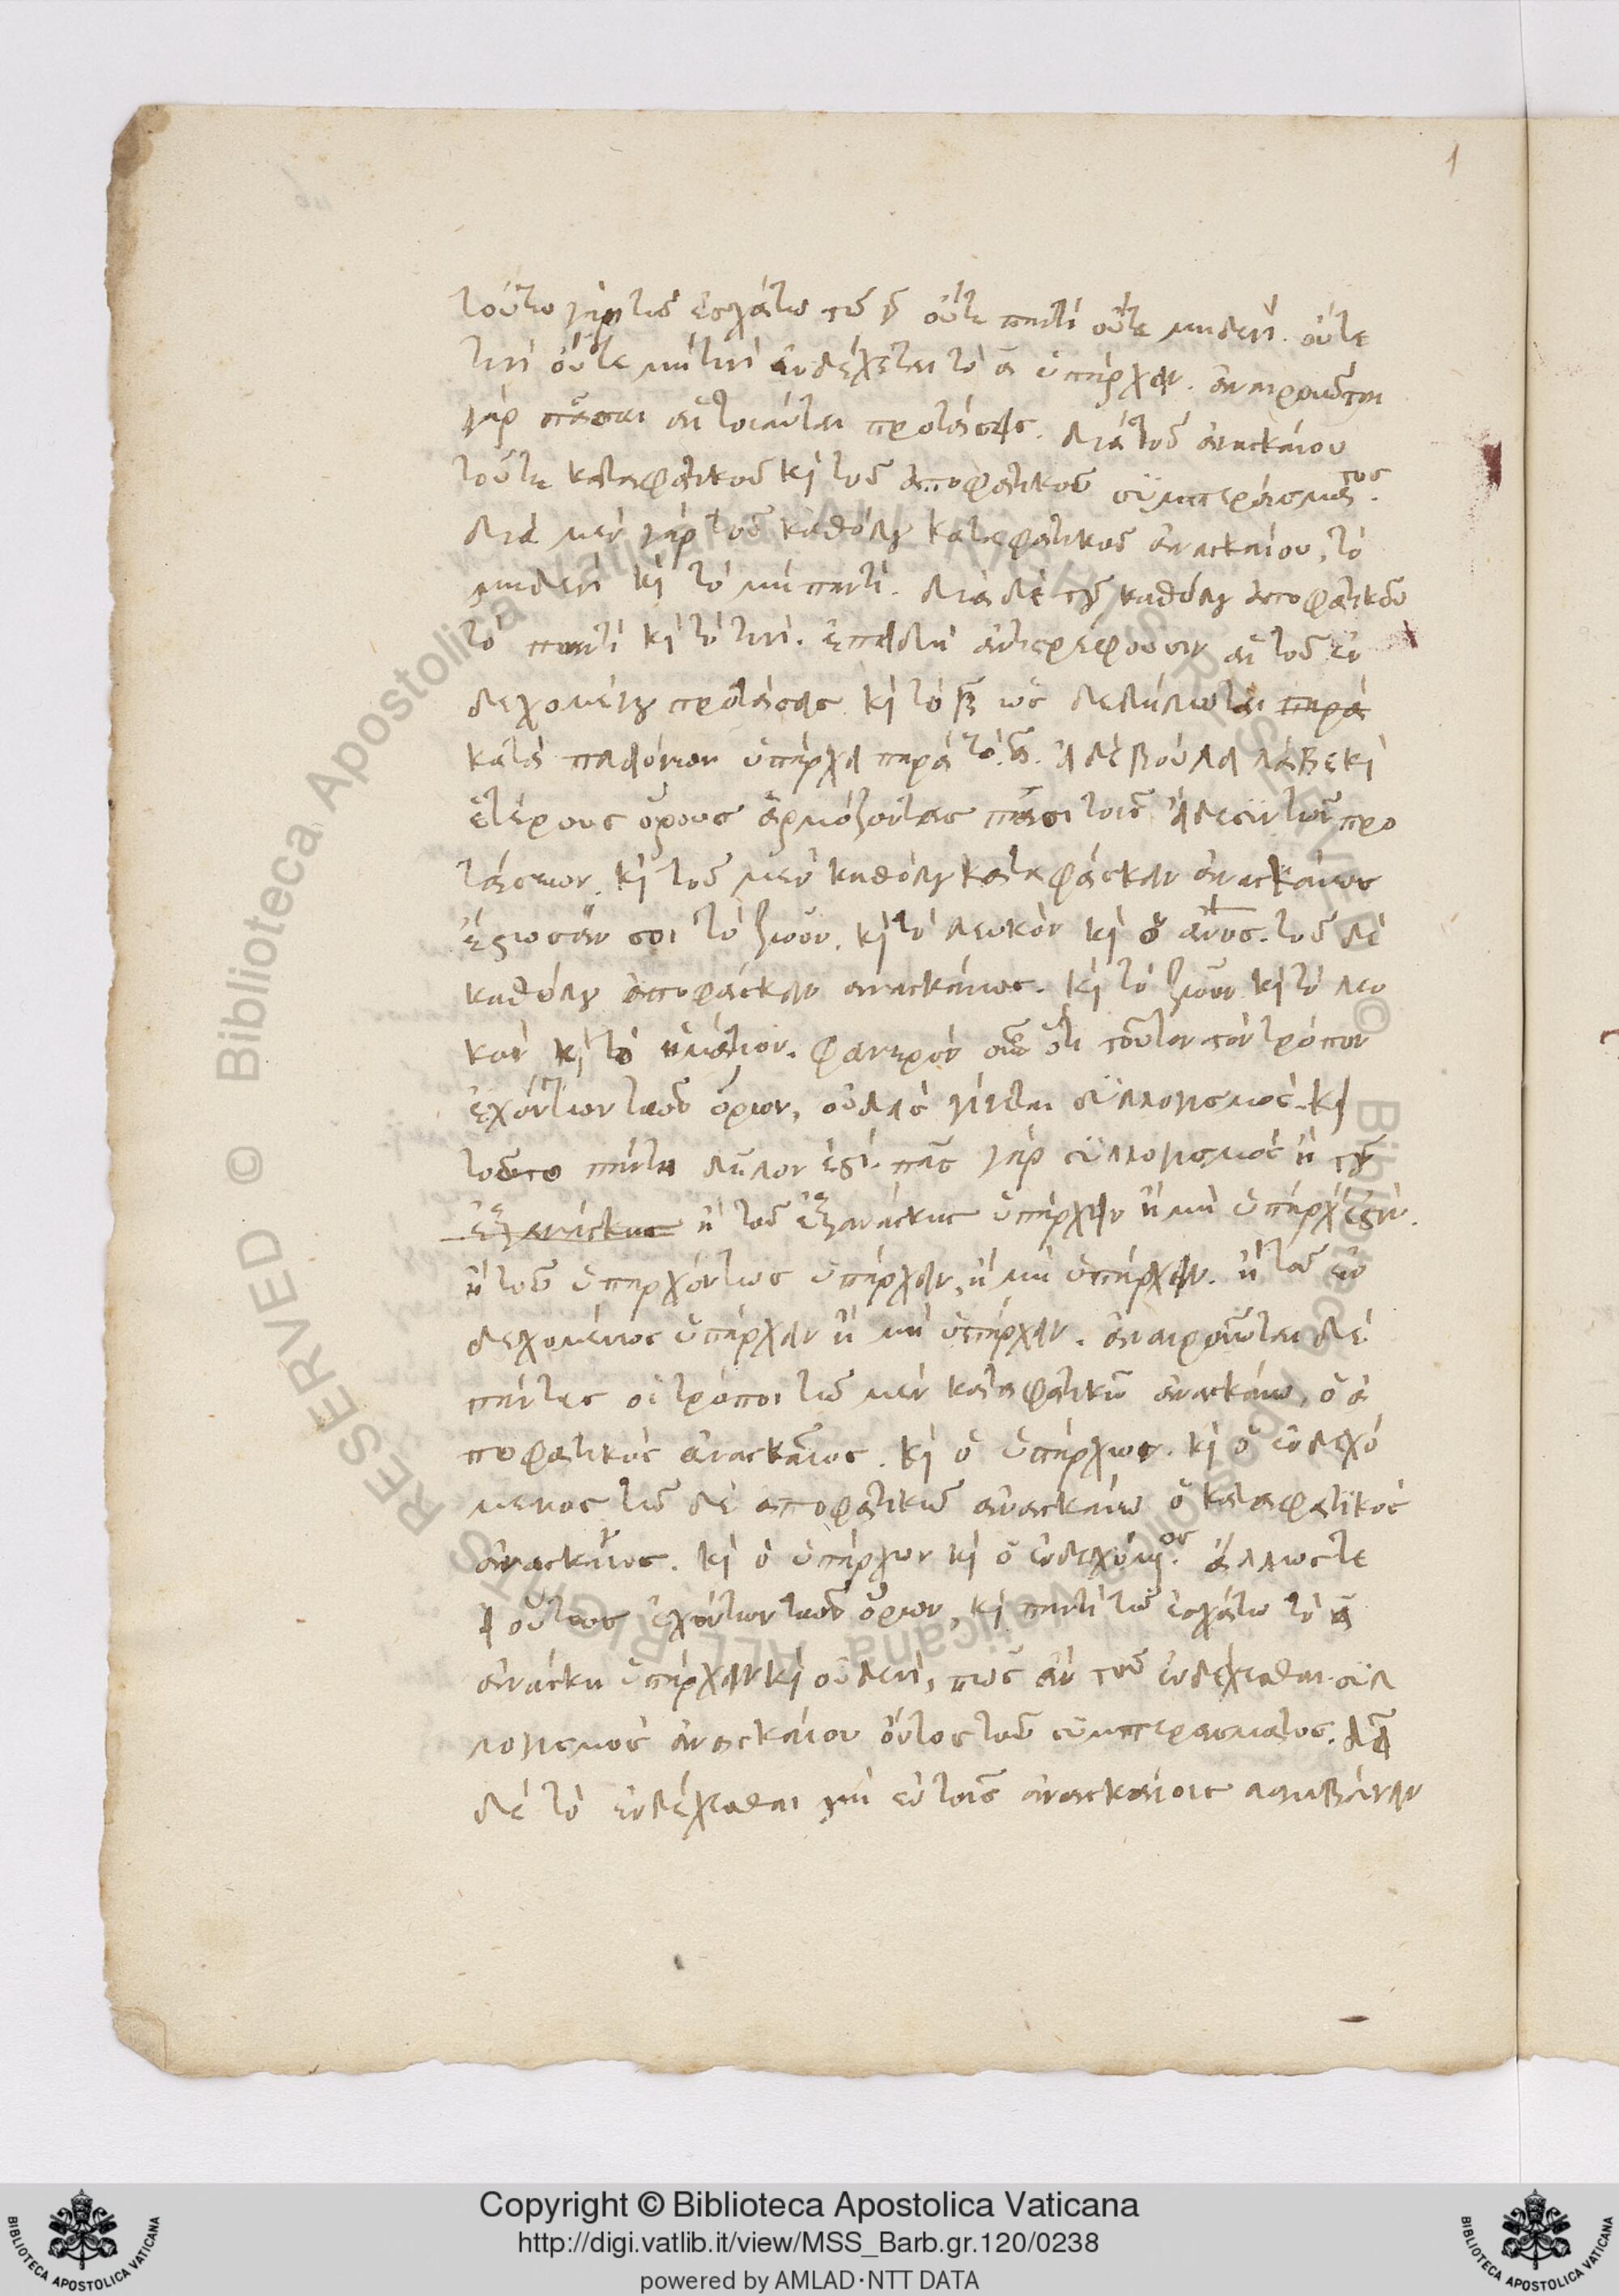 τούτω γὰρ τῶ ἐσχάτω τῶ γ οὔτε παντὶ οὔτε μηδενὶ. οὔτε
τινὶ οὔτε μὴ τινὶ ἐνδέχεται τὸ α ὑπάρχειν. ἀναιροῦνται
γὰρ πᾶσαι αἱ τοιαῦται προτάσεις. διὰ τοῦ ἀναγκαίου
τοῦτε καταφατικοῦ κὶ τοῦ ἀποφατικοῦ συμπεράσματος.
διὰ μὲν γὰρ τοῦ καθόλου καταφατικοῦ ἀναγκαίου, τὸ
μηδενὶ κὶ τὸ μὴ παντὶ. διὰ δὲ τοῦ καθόλου ἀποφατικοῦ
τὸ παντὶ κὶ τὸ τινὶ. ἐπειδὴ ἀντιστρέφουσιν αἱ τοῦ ἐν
δεχομένου προτάσεις κὶ τὸ β ὡς δεδήλωται παρὰ
κατὰ πλειόνων ὑπάρχει παρὰ τὸ α. εἰ δὲ βούλει λάβε κὶ
ἑτέρους ὅρους ἁρμόζοντας πᾶσι τοῖς εἴδεσιν τῶν προ
τάσεων. κὶ τοῦ μὲν καθόλου καταφάσκειν ἀναγκαίως
ἔστωσάν σοι τὸ ζῶον. κὶ τὸ λευκὸν κὶ ὁ ἄνος. τοῦ δὲ
καθόλου ἀποφάσκειν ἀναγκαίως. κὶ τὸ ζῶον κὶ τὸ λευ
κὸν κὶ τὸ ἱμάτιον. φανερὸν οὖν ὅτι τοῦτον τὸν τρόπον
ἐχόντων τῶν ὅρων, οὐδεὶς γίνεται συλλογισμός. κὶ
τοῦτο πάντη δῆλον ἐστὶ. πᾶς γὰρ συλλογισμὸς ἢ τοῦ
ἐξανάγκης ἢ τοῦ ἐξανάγκης ὑπάρχειν ἢ μὴ ὑπάρχειν ἐστὶν.
ἢ τοῦ ὑπαρχόντως ὑπάρχειν, ἢ μὴ ὑπάρχειν. ἢ τοῦ ἐν
δεχομένως ὑπάρχειν ἢ μὴ ὑπάρχειν. ἀναιροῦνται δὲ
πάντες οἱ τρόποι τῶ μὲν καταφατικῶ ἀναγκαίω, ὁ ἀ
ποφατικὸς ἀναγκαῖος. κὶ ὁ ὑπάρχων. κὶ ὁ ἐνδεχό
μενος τῶ δὲ ἀποφατικῶ ἀναγκαίω ὁ καταφατικὸς
ἀναγκαῖος. κὶ ὁ ὑπάρχων κὶ ὁ ἐνδεχόμενος. ἄλλως τε
εἰ οὕτως ἐχόντων τῶν ὅρων, κὶ παντὶ τῶ ἐσχάτω τὸ α
ἀνάγκη ὑπάρχειν κὶ οὐδενὶ, πῶς ἂν τοῦ ἐνδέχεσθαι συλ
λογισμὸς ἀναγκαίου ὄντος τοῦ συμπεράσματος. δεῖ
δὲ τὸ ἐνδέχεσθαι μὴ ἐν τοῖς ἀναγκαίοις λαμβάνειν
1
Copyright © Biblioteca Apostolica Vaticana
http://digi.vatlib.it/view/MSS_Barb.gr.120/0238
powered by AMLAD·NTT DATA